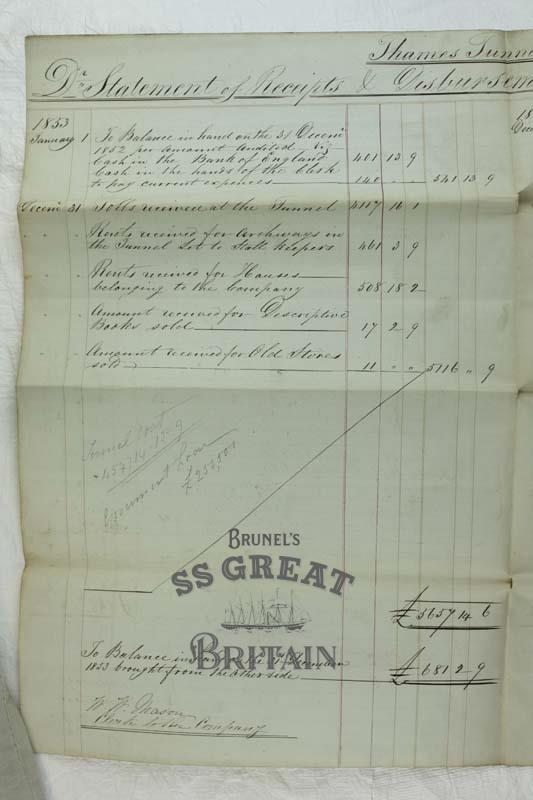 Thames Tunn
Dr. Statement of Receipts & Disbursem
1853
January 1 To Balance in hand on the 31 Decemr
1852 per Amount Audited Viz
Cash in the Bank of England 401 13 9
Cash in the hands of the Clerk
to pay current expences 140 " " 541 13 9
Decemr 31 Tolls received at the Tunnel 4117 16 1
" " Rents received for Archways in
the Tunnel Let to Stall Keepers 461 3 9
" " Rents received for Houses
belonging to the Company 508 18 2
" " Amount received for Descriptive
Books sold 17 2 9
" " Amount received for Old Stores
sold 11 " " 5116 " 9
Tunnel Cost
Government Loan
£250,500
BRUNEL'S
SS GREAT
BRITAIN
£ 5657 14 6
To Balance in
1853 brought from the Other side £ 681 2 9
W. W. Mason
Clerk to the Company
18
Dece